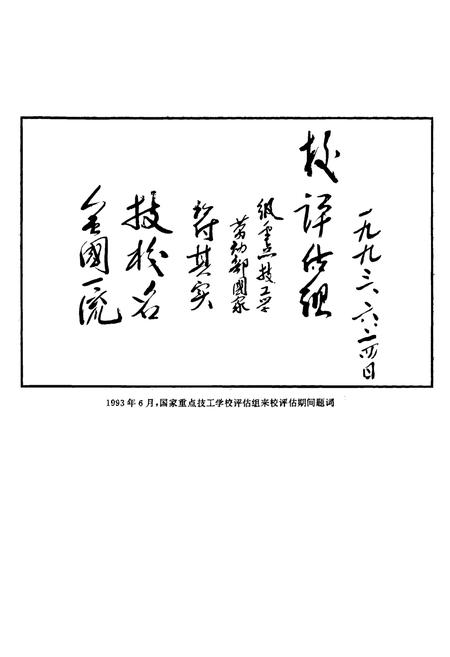 全國一流
技校名
符其实
劳动部國家
级重点技工学
校评估组
一九九三、六、二四日
1993年6月,国家重点技工学校评估组来校评估期间题词